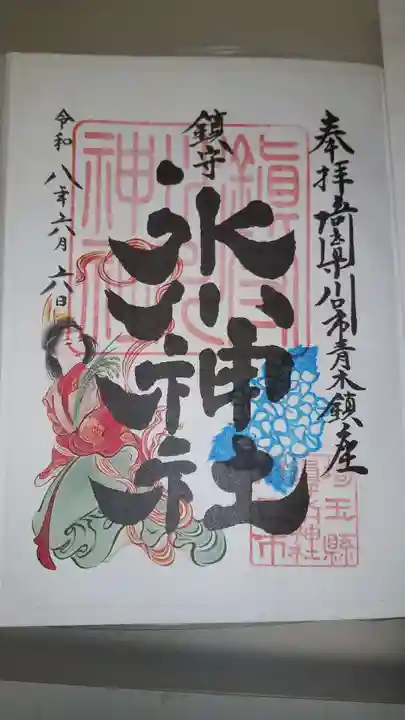 奉拝 埼玉県川口市青木鎮座
鎮守
氷川神社
令和八年六月六日
鎮守
氷川
神社
埼玉縣